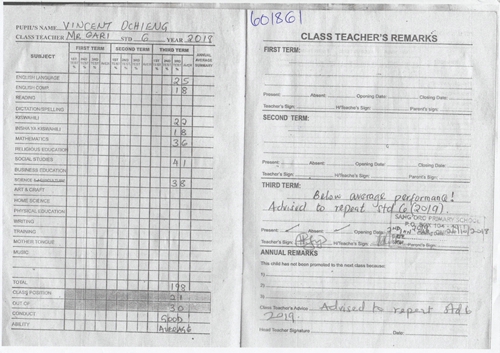 PUPIL'S NAME VINCENT OCHIENG
CLASS TEACHER MR GARI STD 6 YEAR 2018
SUBJECT FIRST TERM SECOND TERM THIRD TERM ANNUAL AVERAGE SUMMARY
ENGLISH LANGUAGE 25
ENGLISH COMP 18
READING
DICTATION/SPELLING
KISWAHILI 22
INSHA YA KISWAHILI 18
MATHEMATICS 36
RELIGIOUS EDUCATION
SOCIAL STUDIES 41
BUSINESS EDUCATION
SCIENCE 38
ART & CRAFT
HOME SCIENCE
PHYSICAL EDUCATION
WRITING
TRAINING
MOTHER TONGUE
MUSIC
TOTAL 198
CLASS POSITION 21
OUT OF 30
CONDUCT GOOD
ABILITY AVERAGE
601861
CLASS TEACHER'S REMARKS
FIRST TERM:
Present: Absent: Opening Date: Closing Date:
Teacher's Sign: H/Teache's Sign: Parent's sign:
SECOND TERM:
Present: Absent: Opening Date: Closing Date:
Teacher's Sign: H/Teache's Sign: Parent's sign:
THIRD TERM:
Below average performance!
Advised to repeat Std 6 (2019).
PRIMARY SCHOOL
P.O. BOX
Present: Absent: Opening Date: 2018
Teacher's Sign: H/Teache's Sign: Parent's sign:
ANNUAL REMARKS
This child has not been promoted to the next class because:
1)
2)
3)
Class Teacher's Advise Advised to repeat Std 6
2019.
Head Teacher Signature Date: